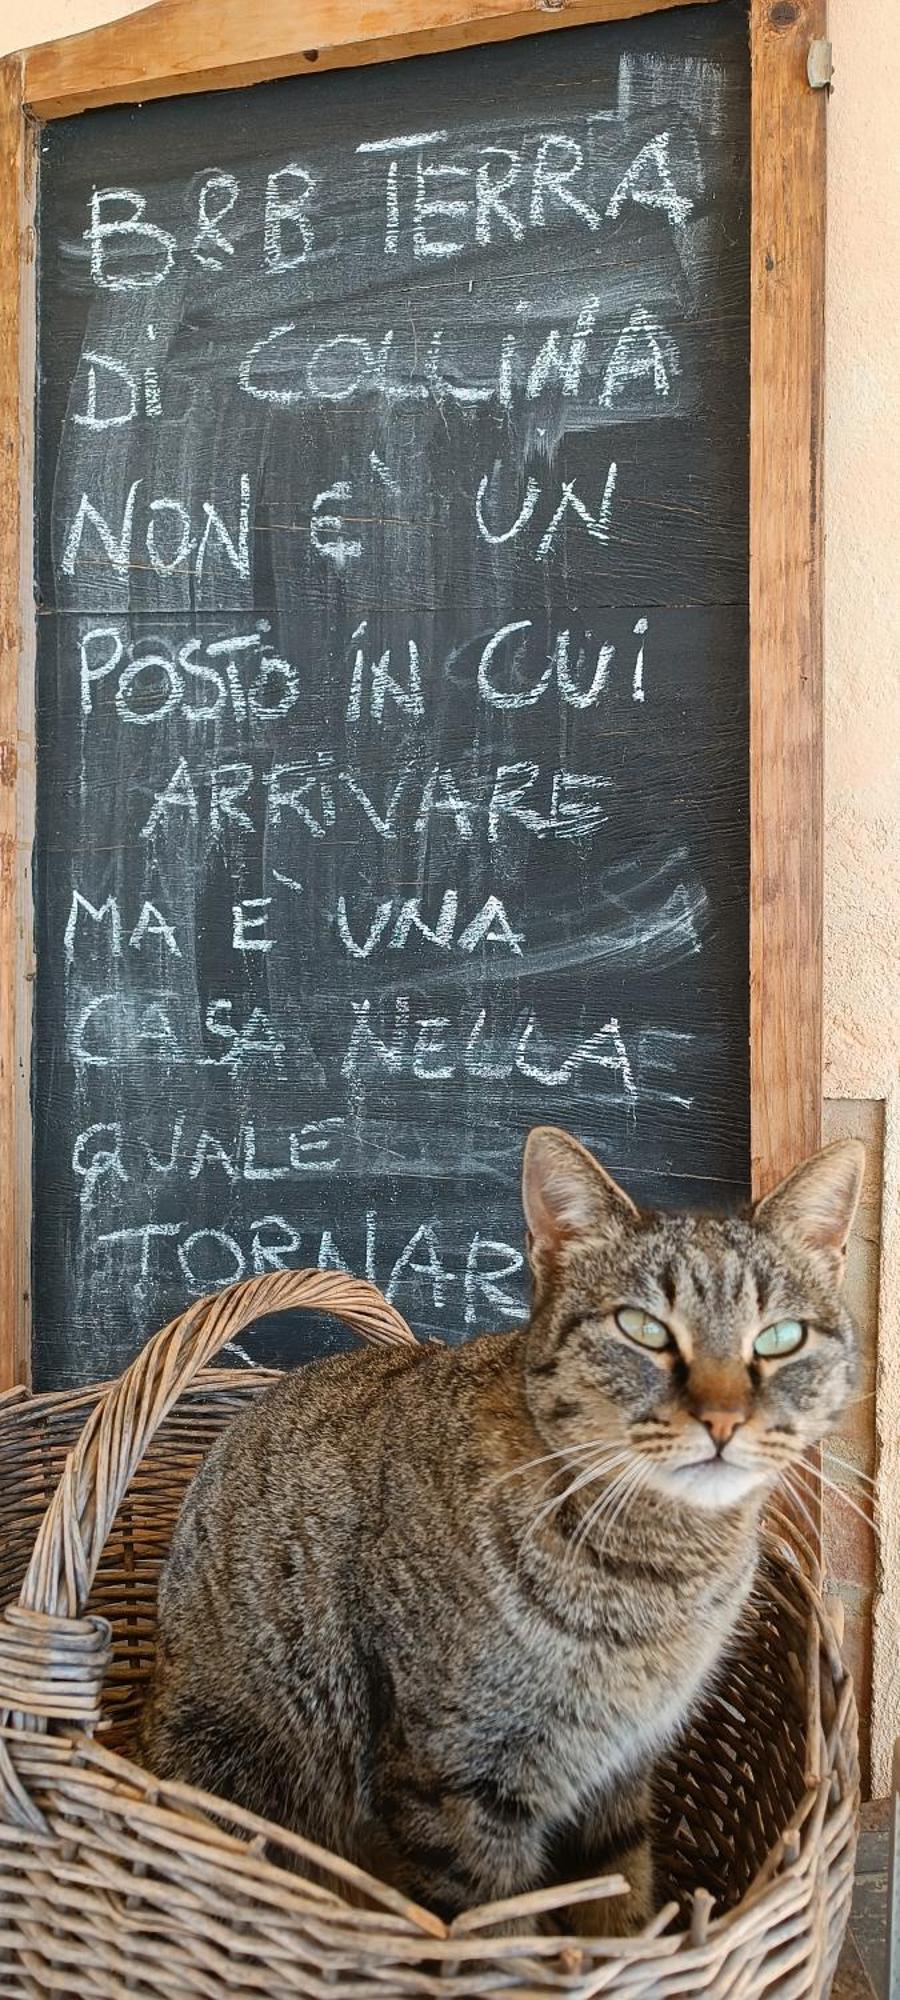 B&B TERRA
Di COLLiNA
NON È UN
POSTO iN CUi
ARRiVARE
MA È UNA
CASA NELLA
QUALE
TORNAR